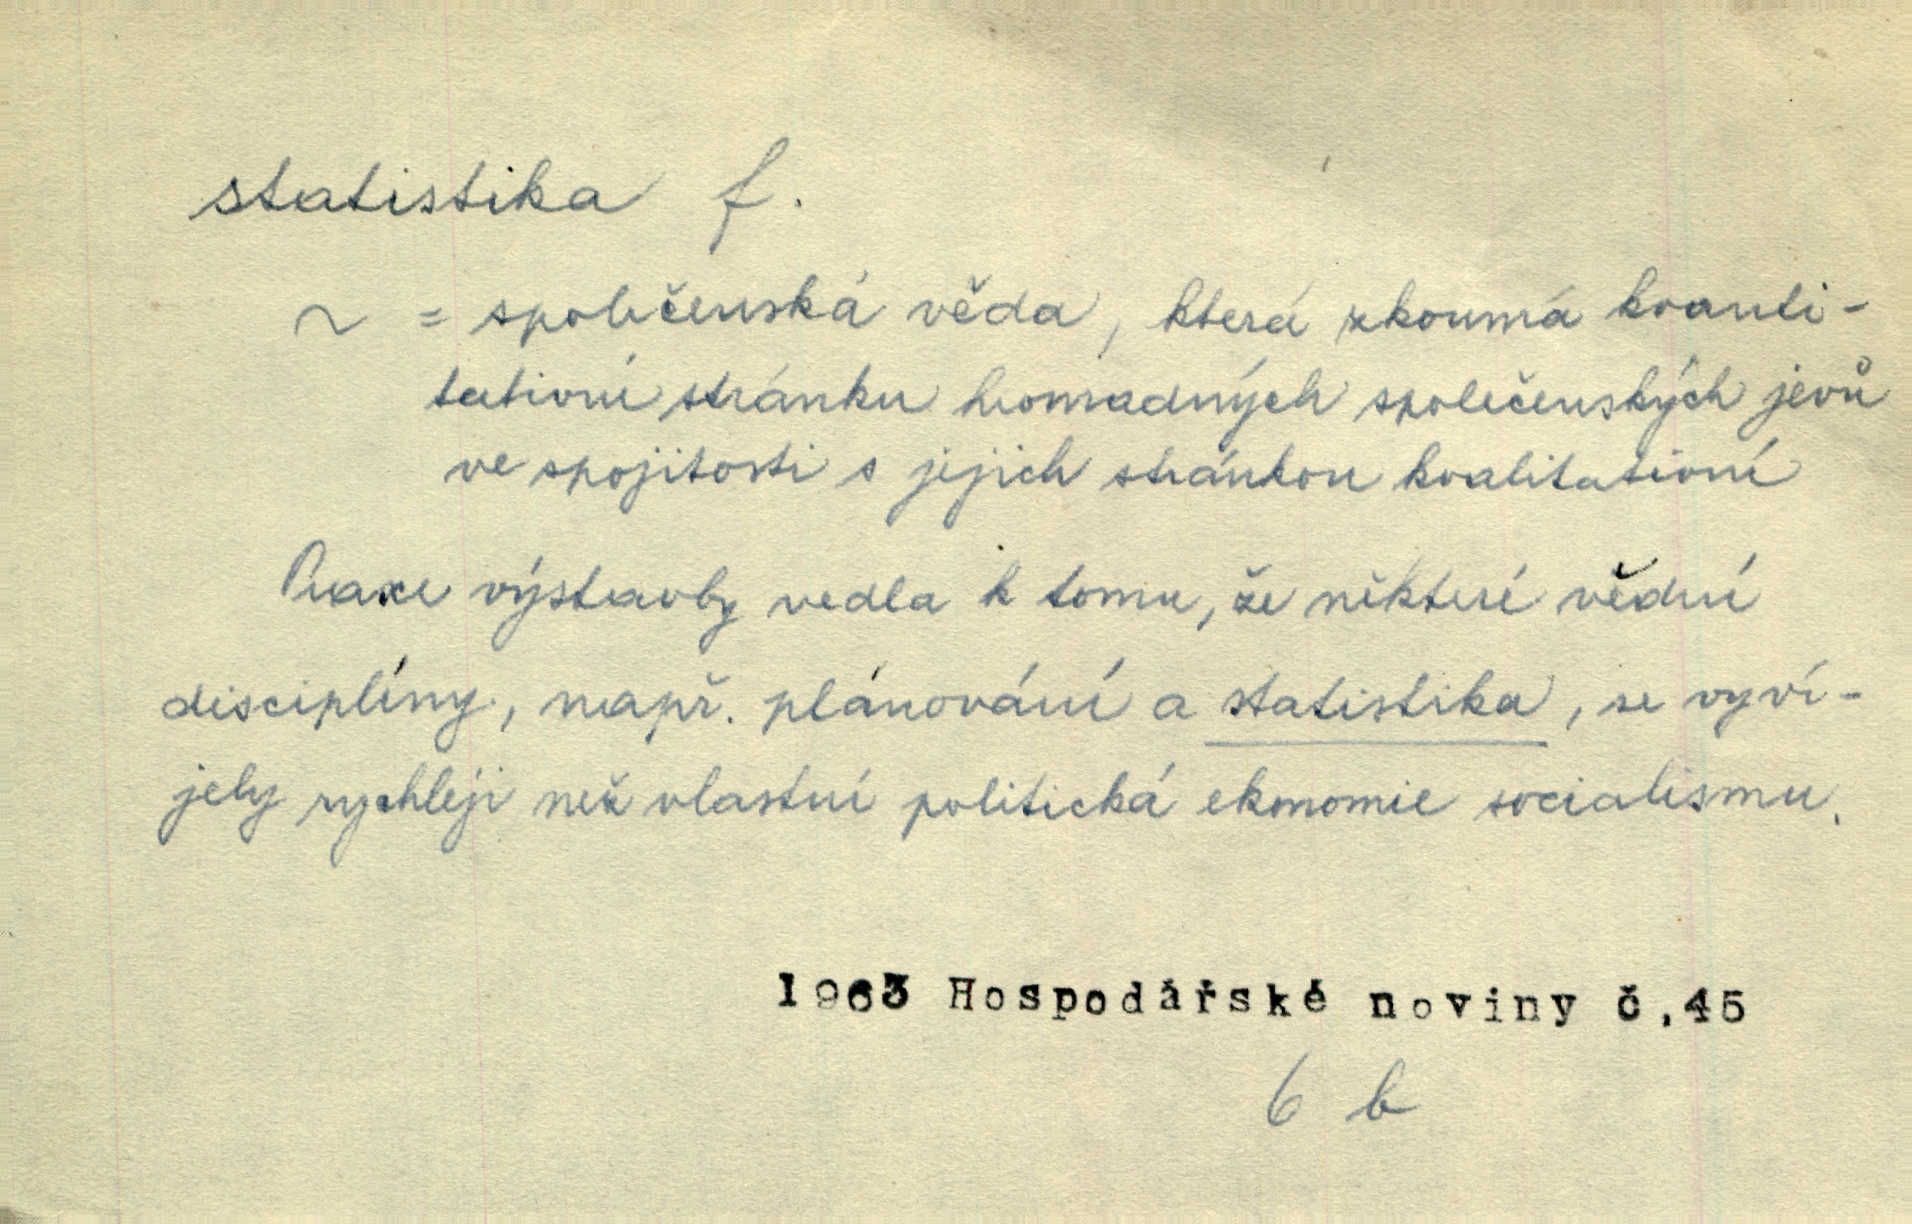 statistika f.
~ = společenská věda, která zkoumá kvanti-
tativní stránku hromadných společenských jevů
ve spojitosti s jejich stránkou kvalitativní
Praxe výstavby vedla k tomu, že některé vědní
disciplíny, např. plánování a statistika, se vyví-
jely rychleji než vlastní politická ekonomie socialismu.
1963 Hospodářské noviny č.45
6 b